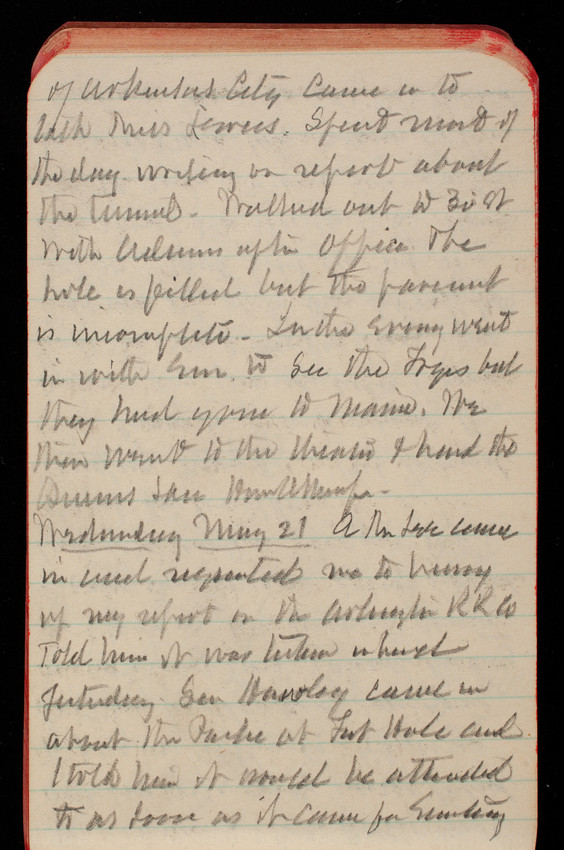 of Arkansas City came in to
with Miss Lewees. Spent most of
the day writing on report about
the tunnel - Walked out to 30 St
with Adams after Office. The
hole is filled but the pavement
is incomplete - In the Evening went
in with Em. to See the Fryes but
they had gone to Maine. We
then went to the theatre & heard the

Wednesday May 21 A Mr Lee came
in and requested me to hurry
up my report on the Arlington RR Co
Told him it was taken
yesterday Sen Hawley came in
about the at Fort Hale and
I told him it would be attended
to as soon as it came for Sundry